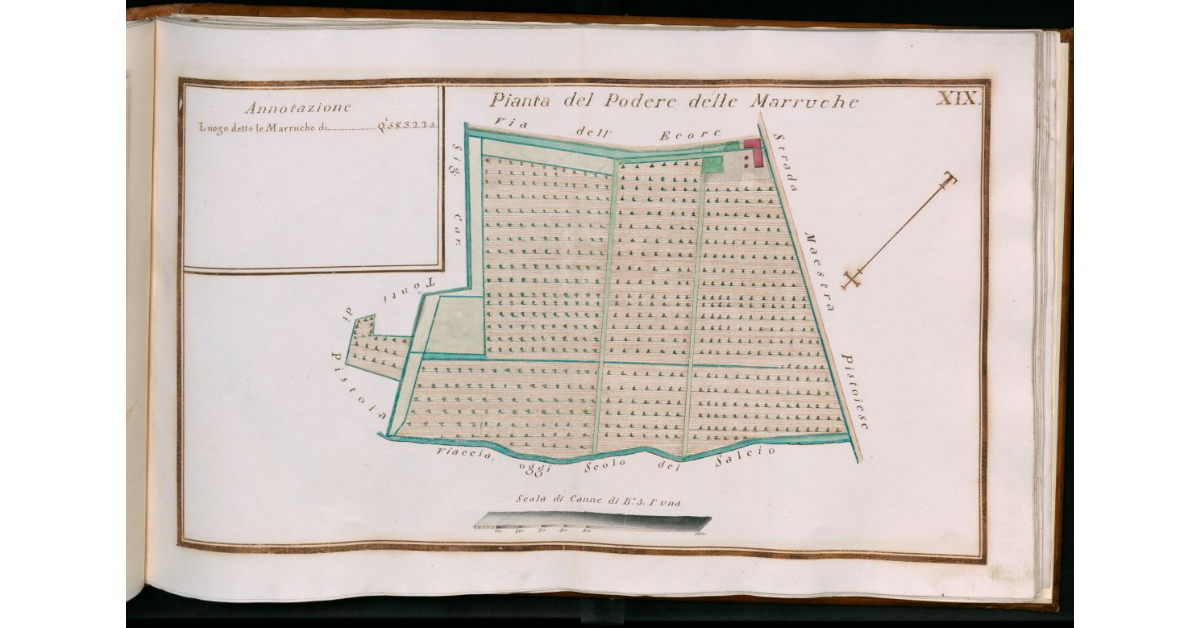 Annotazione
Luogo detto le Marruche di
Pianta del Podere delle Marruche
XIX.
Via dell' Ecore
Strada Maestra Pistoiese
Sig. Cav. Tonti di Pistoia
Viaccia, oggi Scolo del Salcio
Scala di Canne di B.a 5. l'una